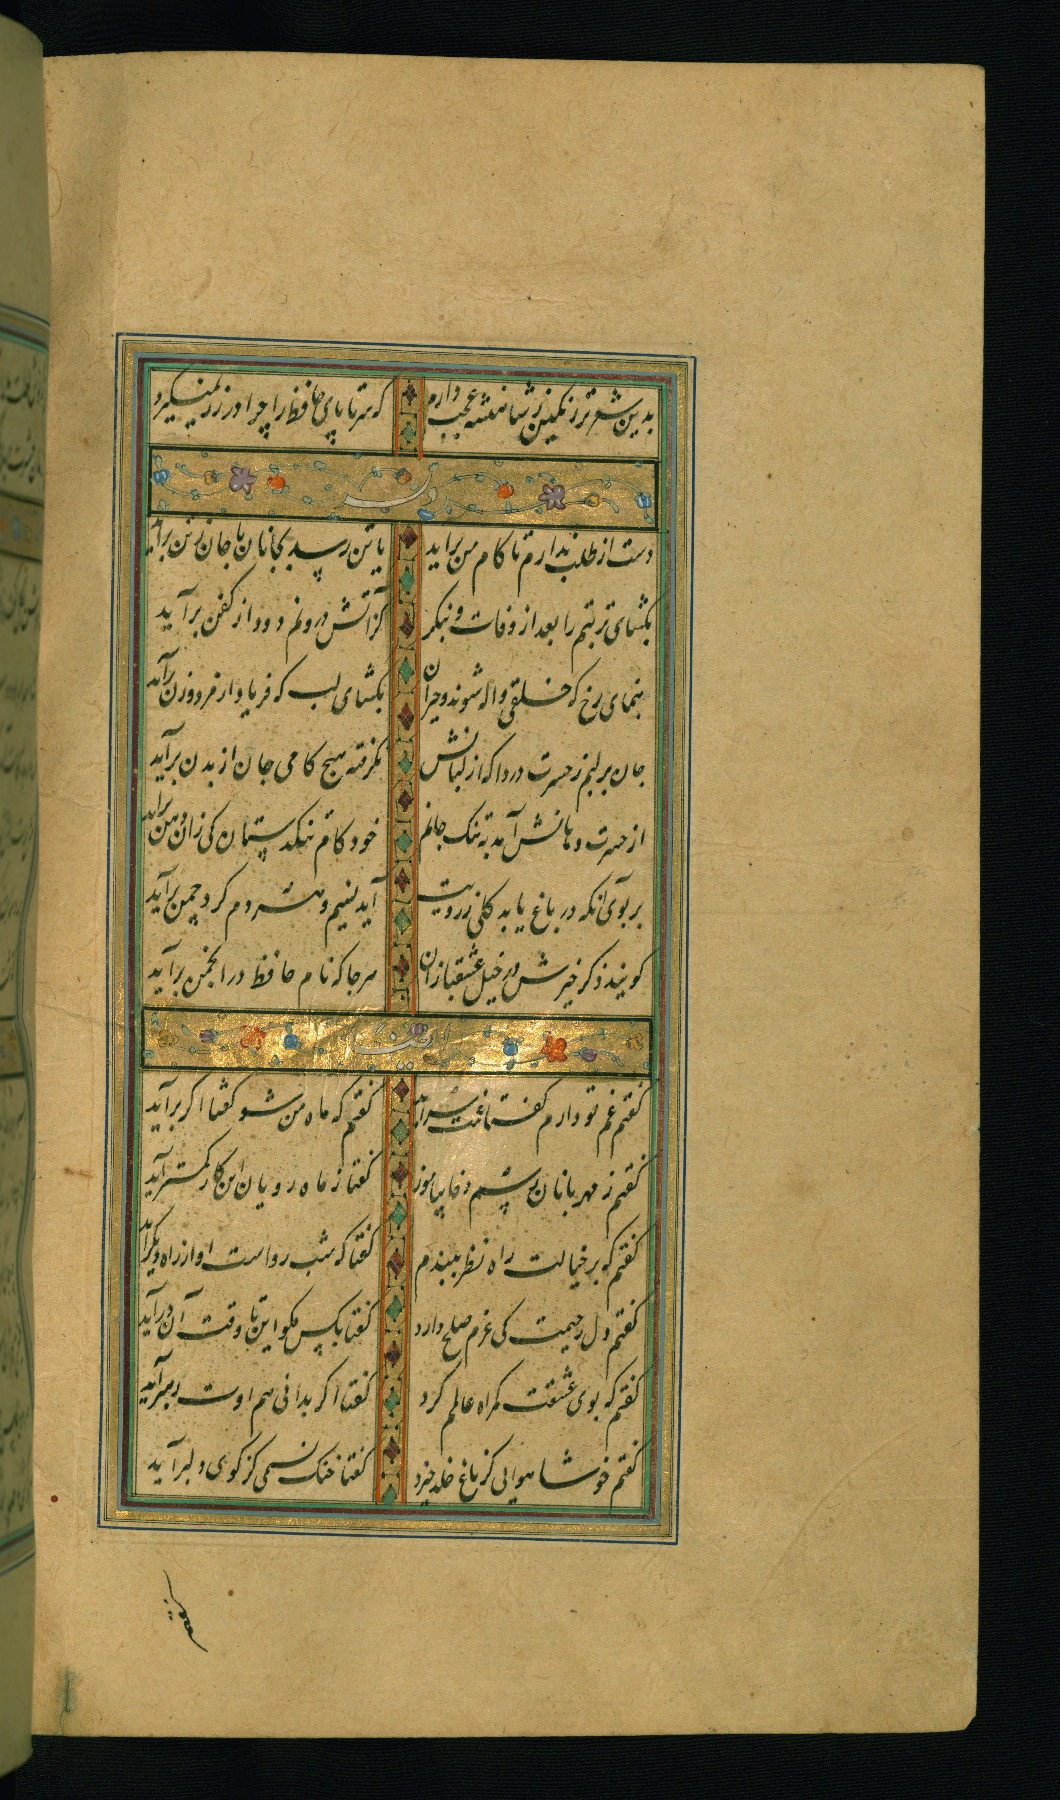 بدین شعر تر رنگین ز شاهنشه عجب دارم که سر تا پای حافظ را چرا در زر نمیگیرد
دست از طلب ندارم تا کام من براید یا تن رسد بجانان یا جان ز تن براید
بکشای تربتم را بعد از وفات و بنکر کز اتش درونم دود از کفن برآید
بنمای رخ که خلقی واله شوند و حیران بکشای لب که فریاد از مرد و زن برآید
جان بر لبم ز حسرت دردا که از لبانش نکرفته هیچ کامی جان از بدن برآید
از حسرت دهانش آمد به تنک جانم خود کام تنکدستان کی زان دهن براید
بر بوی آنکه در باغ یابد کلی ز رویت آید نسیم و هر دم کرد چمن برآید
کویند ذکر خیرش در خیل عشقبازان هر جا که نام حافظ در انجمن برآید
ایضا
کفتم غم تو دارم کفتا غمت سرآید کفتم که ماه من شو کفتا اکر برآید
کفتم ز مهربانان رسم وفا بیاموز کفتا ز ماه رویان این کار کمتر آید
کفتم که بر خیالت راه نظر ببندم کفتا که شب روست او از راه دیکر آید
کفتم دل رحیمت کی عزم صلح دارد کفتا بکس مکو این تا وقت آن درآید
کفتم که بوی عشقت کمراه عالمم کرد کفتا اکر بدانی هم اوت رهبر آید
کفتم خوشا هوایی کز باغ خلد خیزد کفتا خنک نسیمی کز کوی دلبر آید